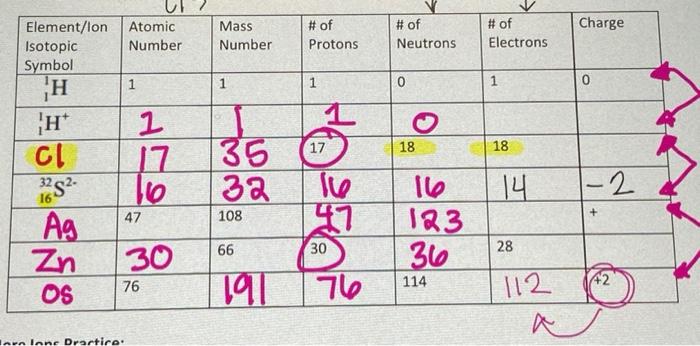 Element/Ion Isotopic Symbol | Atomic Number | Mass Number | # of Protons | # of Neutrons | # of Electrons | Charge
¹₁H | 1 | 1 | 1 | 0 | 1 | 0
¹₁H⁺ | 1 | 1 | 1 | 0
Cl | 17 | 35 | 17 | 18 | 18
³²₁₆S²⁻ | 16 | 32 | 16 | 16 | 14 | -2
Ag | 47 | 108 | 47 | 123 | | +
Zn | 30 | 66 | 30 | 36 | 28
OS | 76 | 191 | 76 | 114 | 112 | +2
Ions Practice: